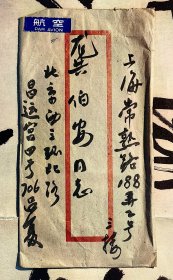 航空
PAR AVION
上海常熟路188弄2号
三楼
龚伯安同志
北京西三环北路
昌运宫四号706吕厦